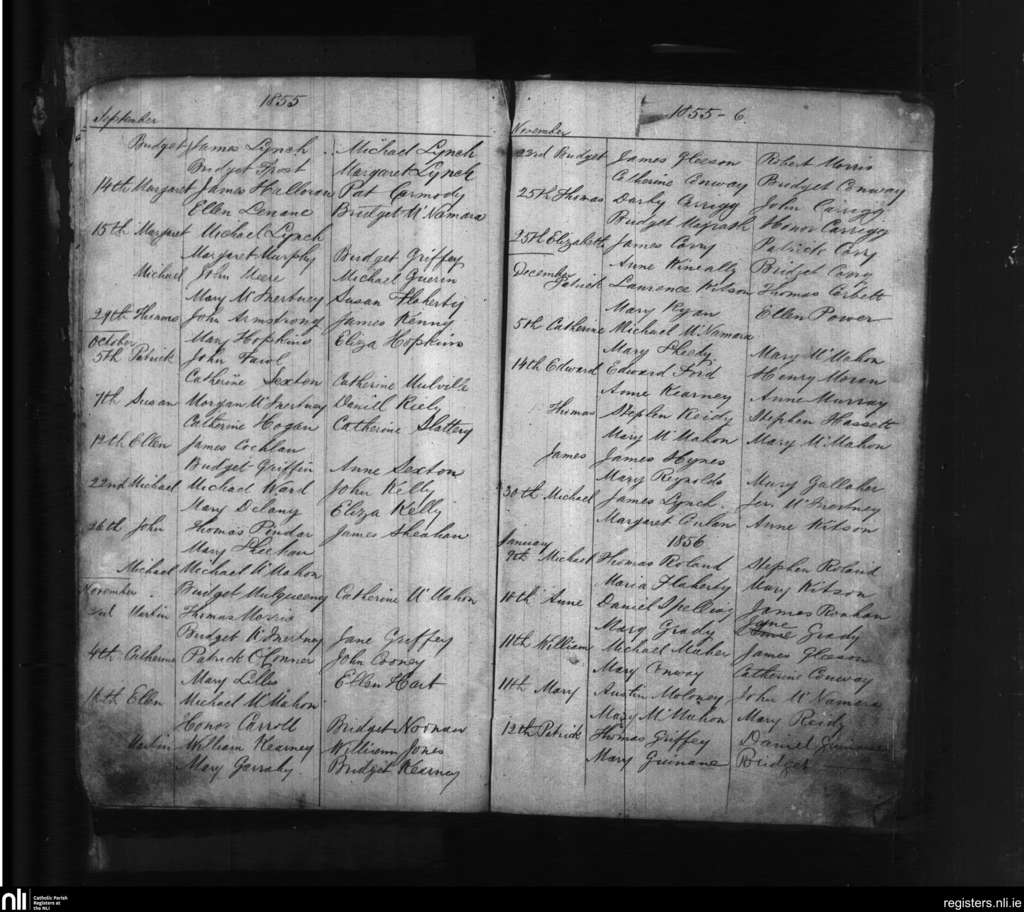 1855
September
Bridget James Lynch Michael Lynch
Bridget Frost Margaret Lynch
14th Margaret James Halloran Pat Carmody
Ellen Lenane Bridget McNamara
15th Margaret Michael Lynch
Margaret Murphy Bridget Griffey
Michael John Meere Michael Guerin
Mary McInertney Susan Flaherty
29th Thomas John Armstrong James Kenny
October Mary Hopkins Eliza Hopkins
5th Patrick John Fawl
Catherine Sexton Catherine Mulville
7th Susan Morgan McInertney Daniel Kiely
Catherine Hogan Catherine Slattery
12th Ellen James Coghlan
Bridget Griffin Anne Sexton
22nd Michael Michael Ward John Kelly
Mary Delany Eliza Kelly
26th John Thomas Pindar James Sheahan
Mary Sheehan
Michael Michael McMahon
November Bridget Mulqueeny Catherine McMahon
2nd Martin Thomas Morris
Bridget McInertney Jane Greffey
4th Catherine Patrick O'Conner John Cooney
Mary Lillis Ellen Hart
10th Ellen Michael McMahon
Honor Carroll Bridget Noonan
Martin William Kearney William Jones
Mary Garrahy Bridget Kearney
1855-6.
November
23rd Bridget James Gleeson Robert Morris
Catherine Conway Bridget Conway
25th Thomas Darby Carrigg John Carrigg
Bridget Magrath Honor Carrigg
25th Elizabeth James Corry Patrick Corry
Anne Kineally Bridget Corry
December
Patrick Laurence Wilson Thomas Corbett
Mary Ryan Ellen Power
5th Catherine Michael McNamara
Mary Sheedy Mary McMahon
14th Edward Edward Ford Henry Moran
Anne Kearney Anne Murray
Thomas Stephen Reidy Stephen Hassett
Mary McMahon Mary McMahon
James James Hynes
Mary Reynolds Mary Gallaher
30th Michael James Lynch Jer. McInertney
Margaret Anne Wilson
January 1856
9th Michael Thomas Roland Stephen Roland
Maria Flaherty Mary Wilson
10th Anne Daniel Spellissy James Ronhan
Mary Grady Jane Grady
11th William Michael Meaher James Gleeson
Mary Conway Catherine Conway
11th Mary Austin Moloney John McNamara
Mary McMahon Mary Reidy
12th Patrick Thomas Griffey Daniel Guinane
Mary Guinane Bridget
nli
Catholic Parish
Registers at
the NLI
registers.nli.ie